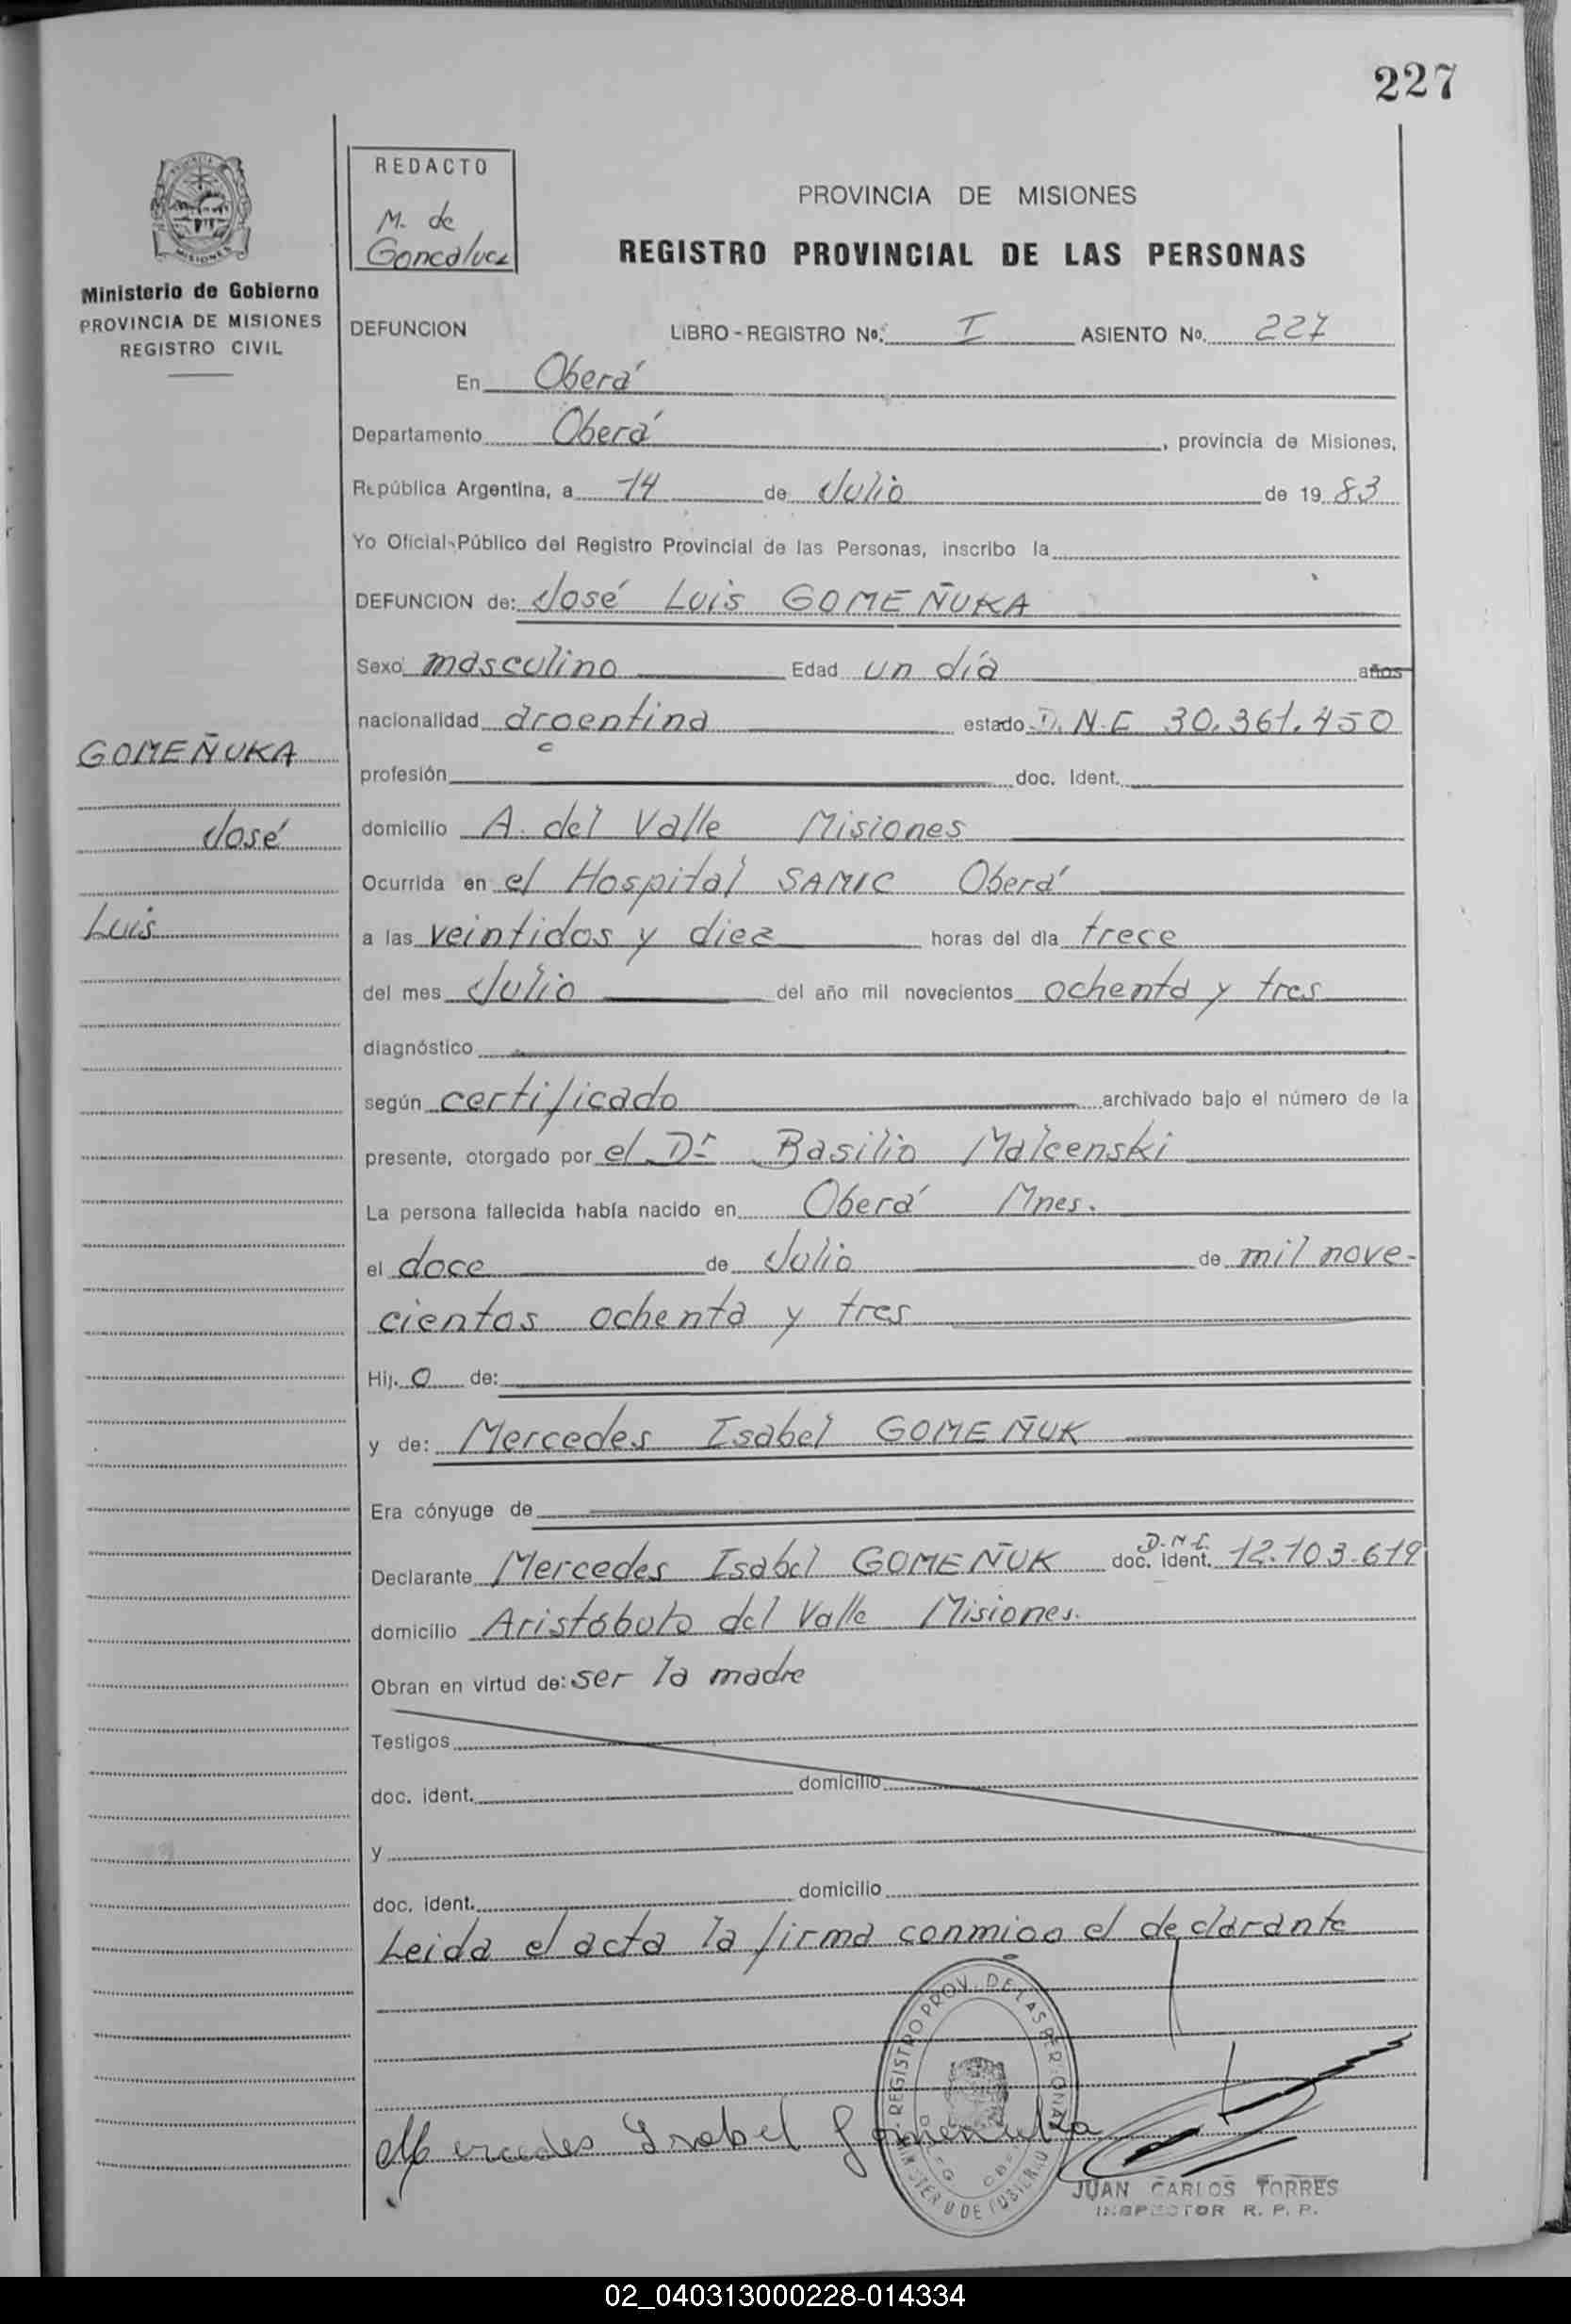 227
REDACTO
M. de
Goncalvez
PROVINCIA DE MISIONES
REGISTRO PROVINCIAL DE LAS PERSONAS
Ministerio de Gobierno
PROVINCIA DE MISIONES
REGISTRO CIVIL
DEFUNCION LIBRO - REGISTRO No. I ASIENTO No. 227
En Oberá
Departamento Oberá, provincia de Misiones,
República Argentina, a 14 de Julio de 19 83
Yo Oficial Público del Registro Provincial de las Personas, inscribo la
DEFUNCION de: José Luis GOMEÑUKA
Sexo masculino Edad un día años
nacionalidad argentina estado D.N.I. 30.361.450
GOMEÑUKA
profesión doc. Ident.
José
domicilio A. del Valle Misiones
Ocurrida en el Hospital SAMIC Oberá
Luis
a las veintidos y diez horas del día trece
del mes Julio del año mil novecientos ochenta y tres
diagnóstico
según certificado archivado bajo el número de la
presente, otorgado por el Dr Basilio Malcenski
La persona fallecida había nacido en Oberá Mnes.
el doce de Julio de mil nove-
cientos ochenta y tres
Hij. o de:
y de: Mercedes Isabel GOMEÑUK
Era cónyuge de
Declarante Mercedes Isabel GOMEÑUK doc. ident. D.N.I. 12.103.619
domicilio Aristóbulo del Valle Misiones.
Obran en virtud de: ser la madre
Testigos
doc. ident. domicilio
y
doc. ident. domicilio
Leida el acta la firma conmigo el declarante
REGISTRO PROV. DE LAS PERSONAS
MINISTERIO DE GOBIERNO
Mercedes Isabel Gomeñuka
JUAN CARLOS TORRES
INSPECTOR R. P. P.
02_040313000228-014334